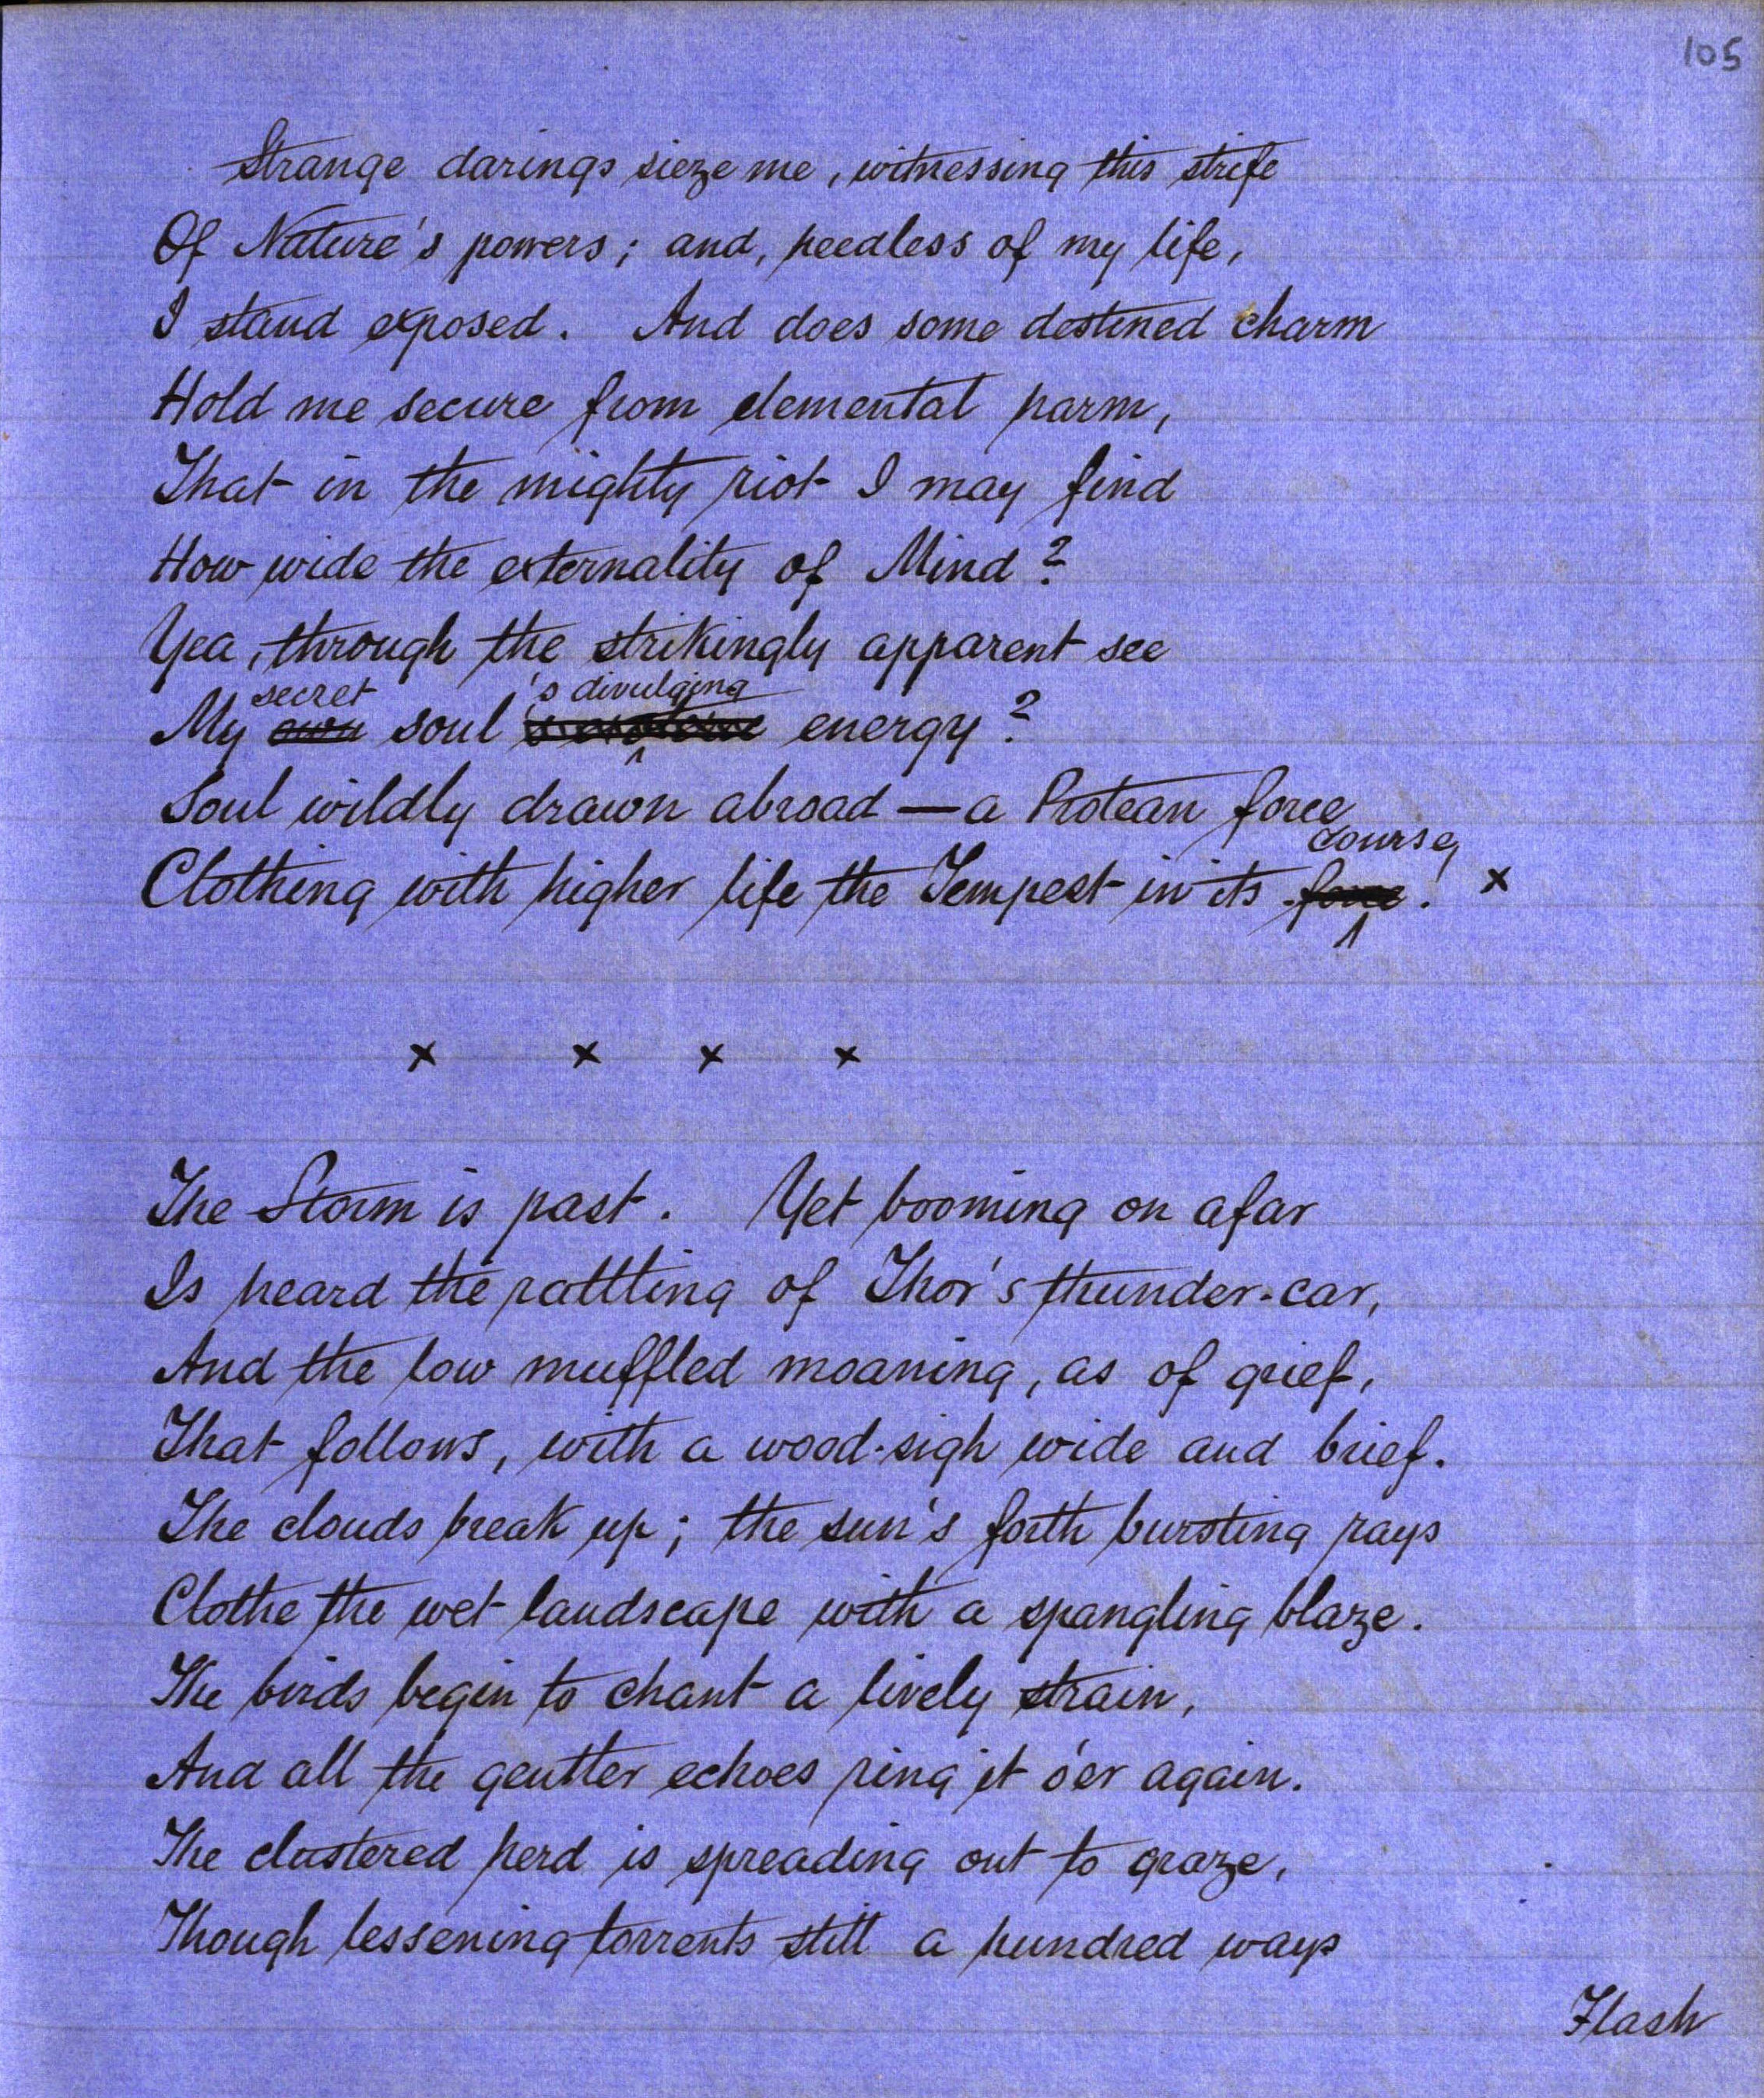 105
Strange darings sieze me, witnessing this strife
Of Nature's powers; and, heedless of my life,
I stand exposed. And does some destined charm
Hold me secure from elemental harm,
That in the mighty riot I may find
How wide the externality of Mind?
Yea, through the strikingly apparent see
secret 's divulging
My own soul energy?
Soul wildly drawn abroad — a Protean force
course,
Clothing with higher life the Tempest in its force.! x
x x x x
The Storm is past. Yet booming on afar
Is heard the rattling of Thor's thunder-car,
And the low muffled moaning, as of grief,
That follows, with a wood-sigh wide and brief.
The clouds break up; the sun's forth bursting rays
Clothe the wet landscape with a spangling blaze.
The birds begin to chant a lively strain,
And all the gentler echoes ring it o'er again.
The clustered herd is spreading out to graze,
Though lessening torrents still a hundred ways
Flash